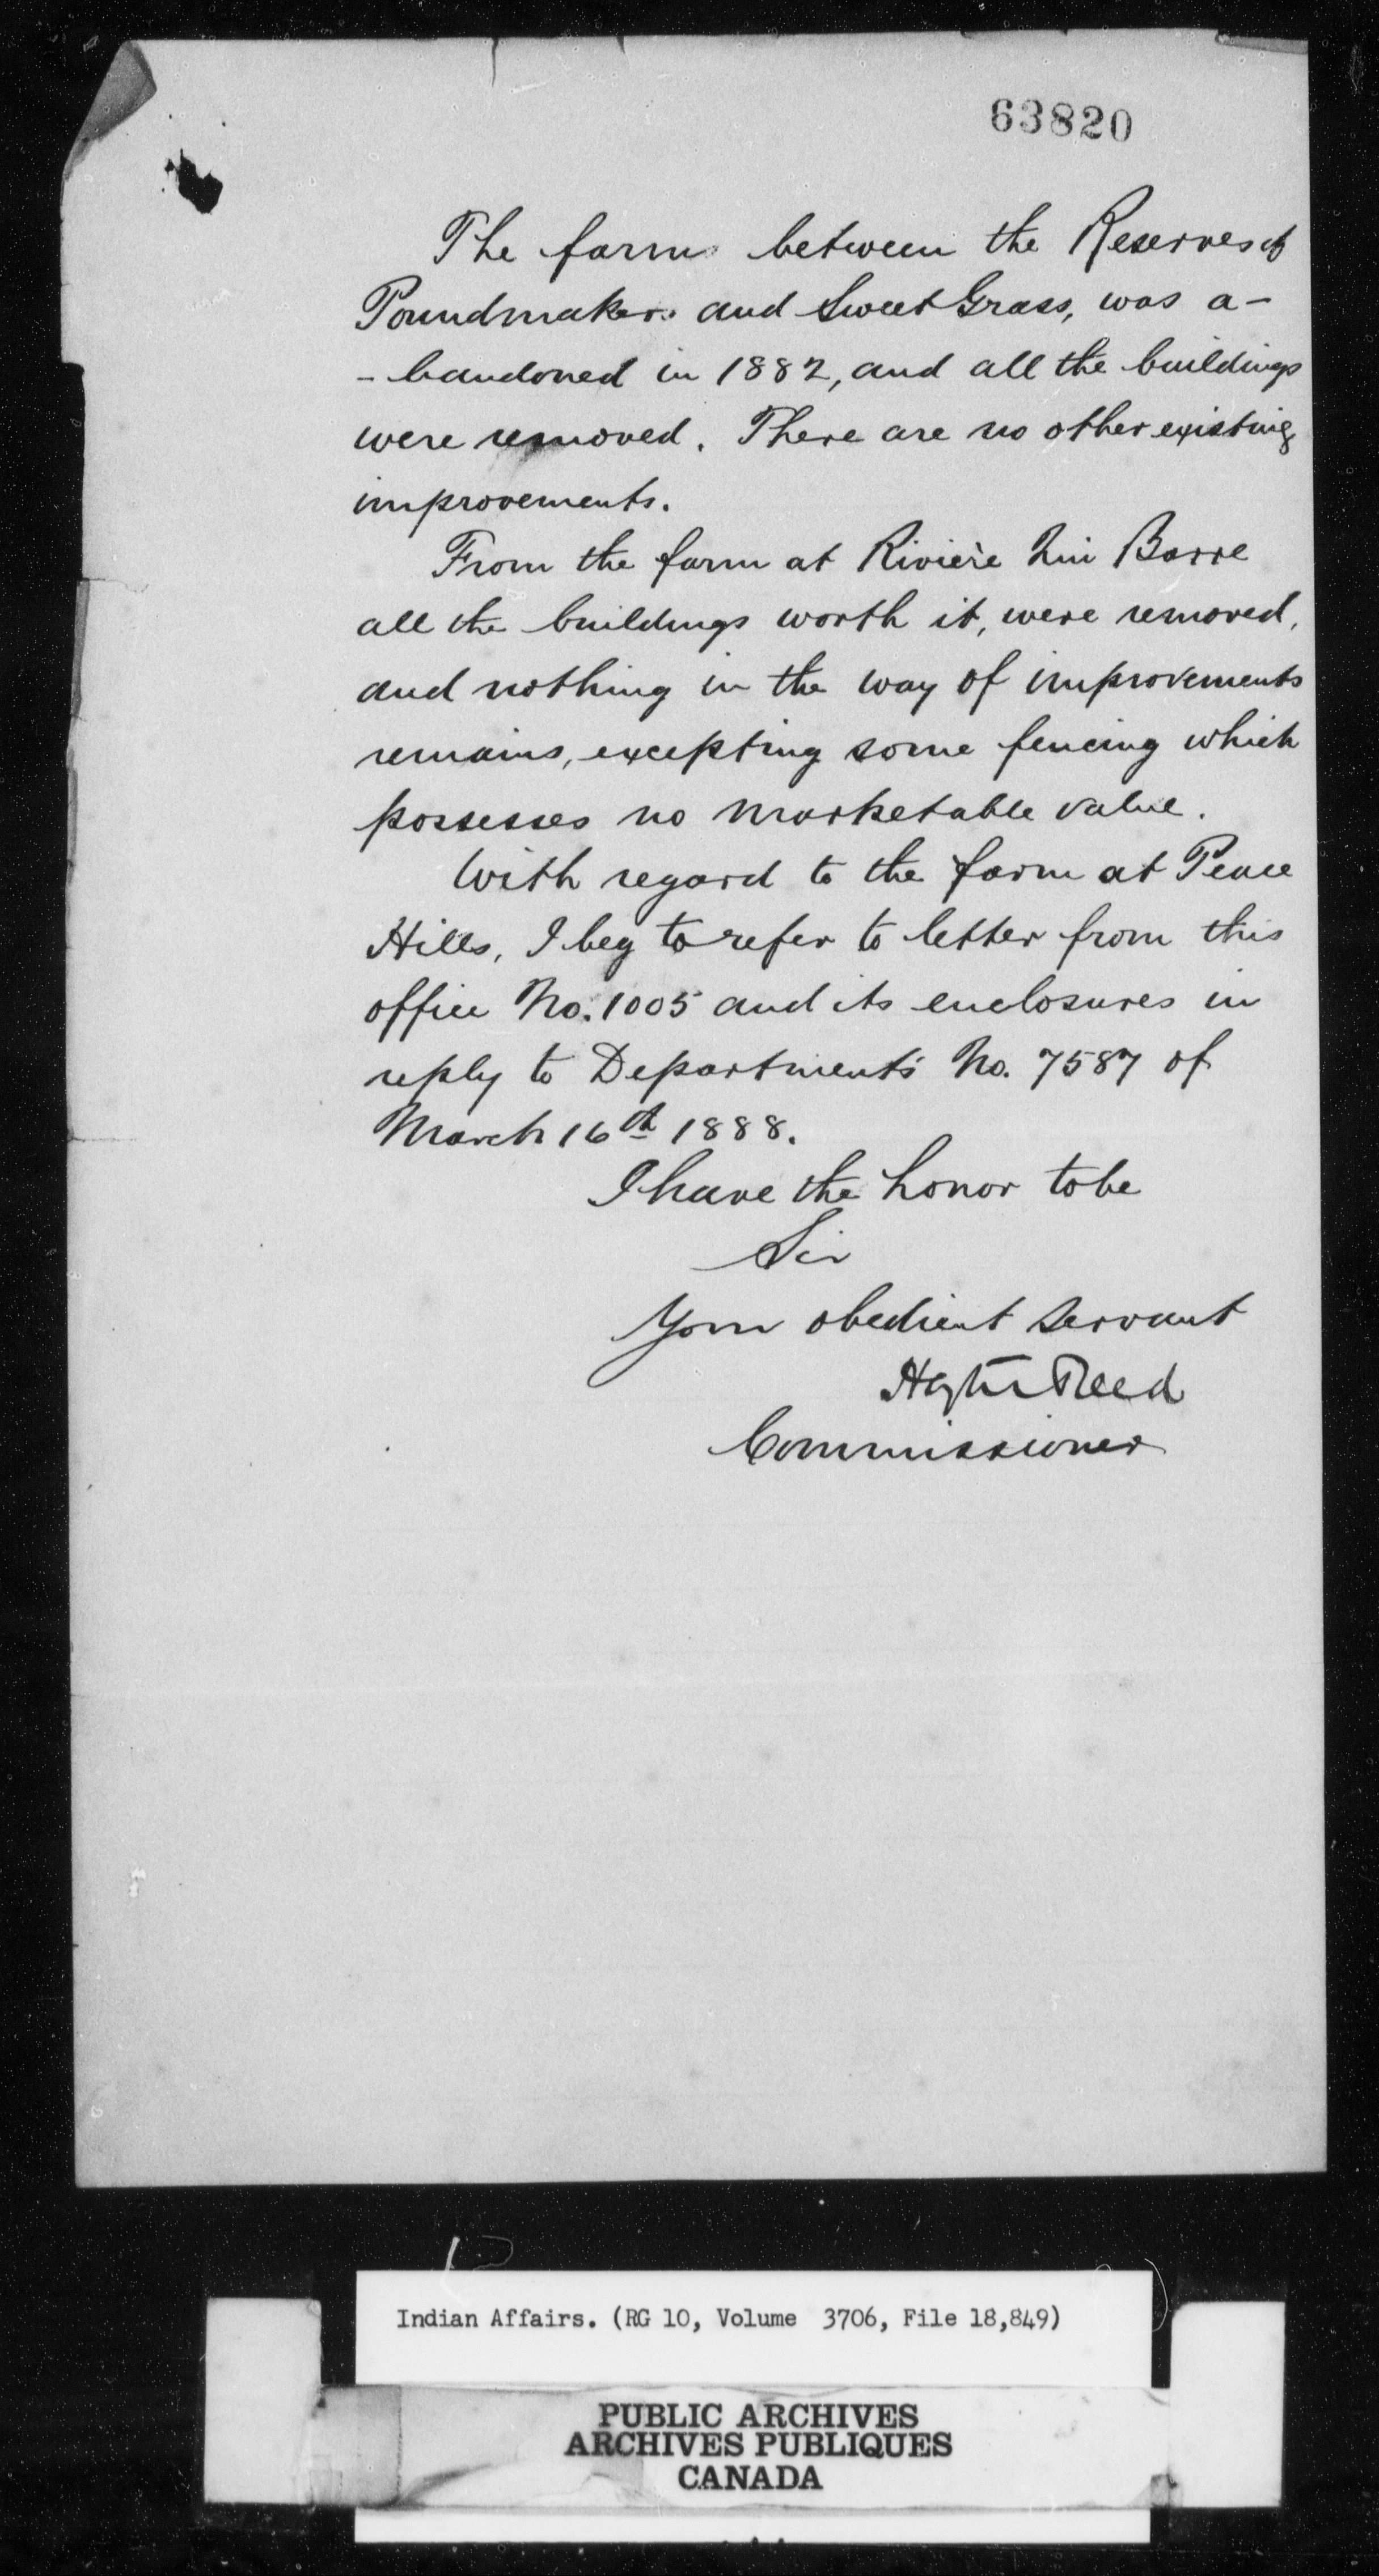 63820
The farm between the Reserves of
Poundmaker and Sweet Grass, was a-
-bandoned in 1882, and all the buildings
were removed. There are no other existing
improvements.
From the farm at Rivière Qui Barre
all the buildings worth it, were removed,
and nothing in the way of improvements
remains, excepting some fencing which
possesses no marketable value.
With regard to the farm at Peace
Hills, I beg to refer to letter from this
office No. 1005 and its enclosures in
reply to Department's No. 7587 of
March 16th 1888.
I have the honor to be
Sir
Your obedient servant
Hayter Reed
Commissioner
Indian Affairs. (RG 10, Volume 3706, File 18,849)
PUBLIC ARCHIVES
ARCHIVES PUBLIQUES
CANADA